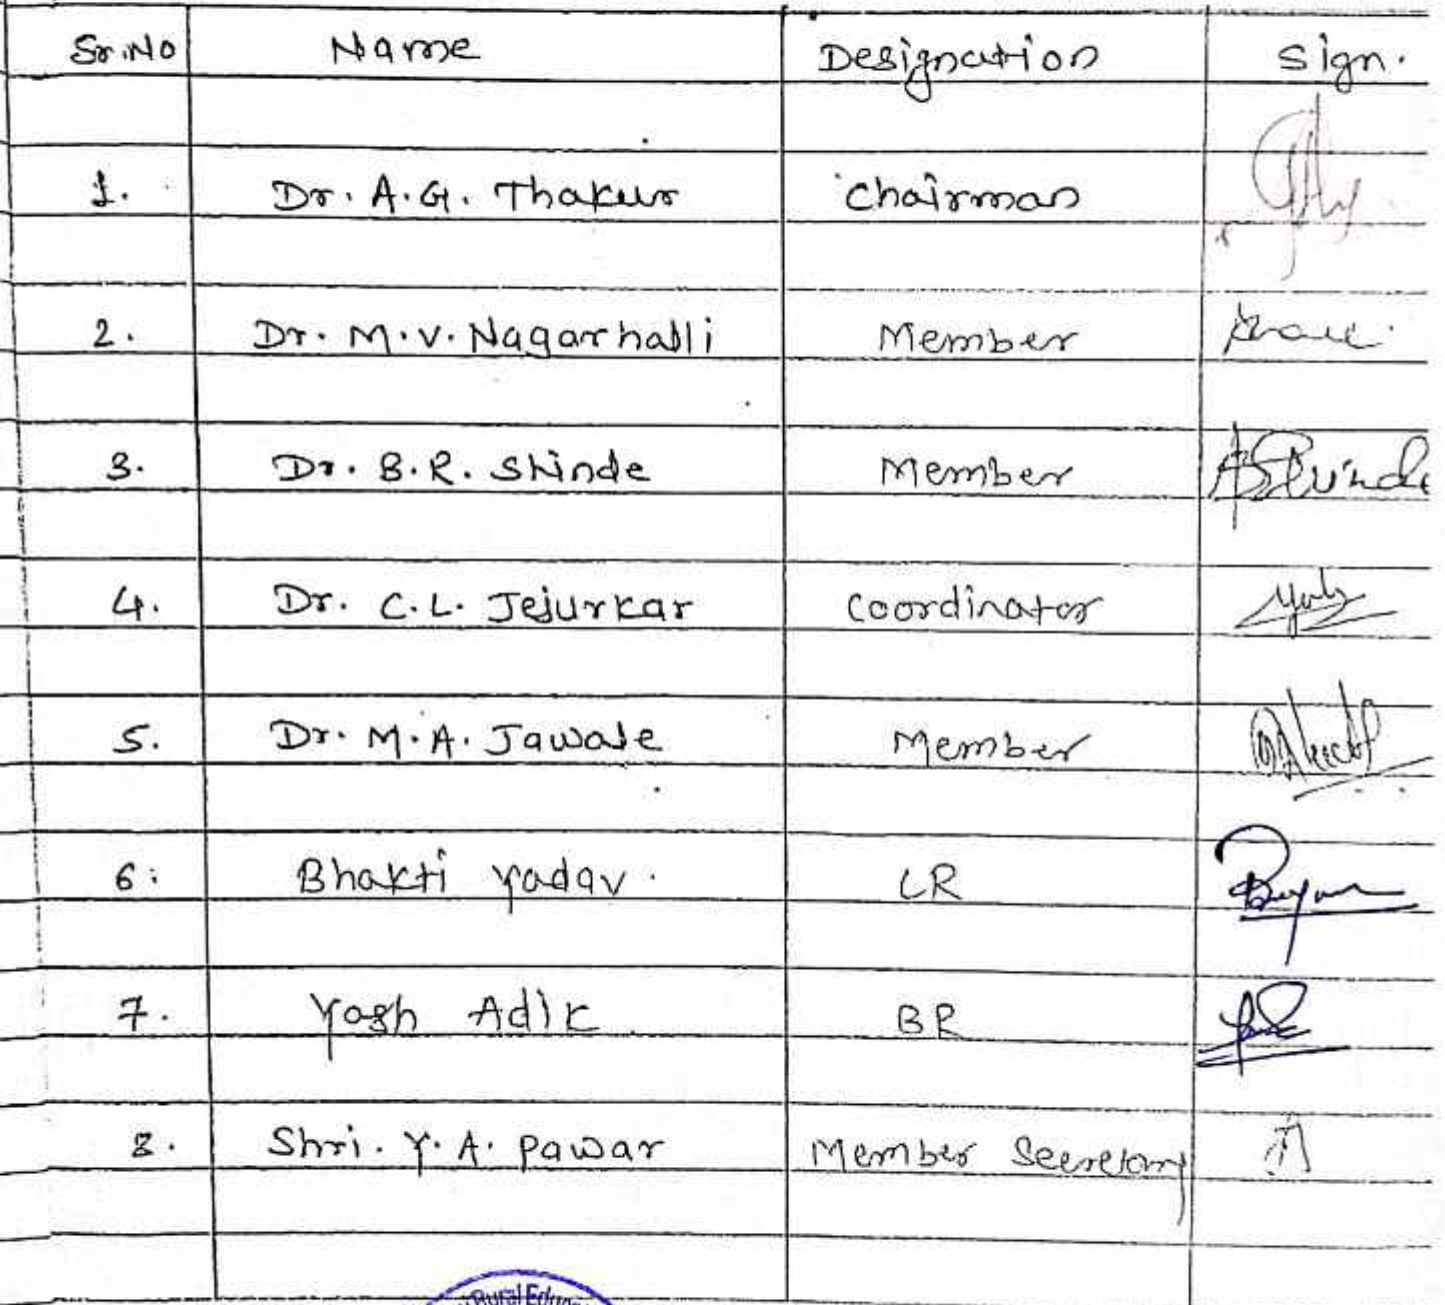 Sr.No Name Designation Sign.
1. Dr. A.G. Thakur Chairman
2. Dr. M.V. Nagarhalli Member
3. Dr. B.R. Shinde Member BShinde
4. Dr. C.L. Jejurkar Coordinator
5. Dr. M.A. Jawale Member
6. Bhakti Yadav. LR
7. Yash Adik BR
8. Shri. Y.A. Pawar Member Secretary
Rural